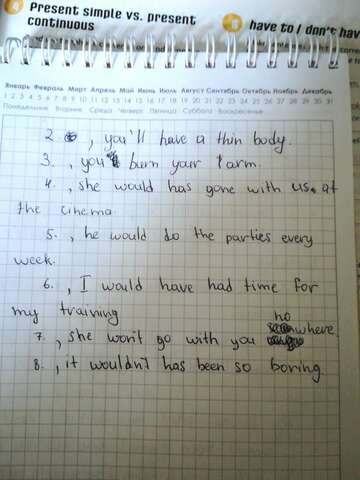 Present simple vs. present
continuous
have to / don't hav
Январь Февраль Март Апрель Май Июнь Июль Август Сентябрь Октябрь Ноябрь Декабрь
1 2 3 4 5 6 7 8 9 10 11 12 13 14 15 16 17 18 19 20 21 22 23 24 25 26 27 28 29 30 31
Понедельник Вторник Среда Четверг Пятница Суббота Воскресенье
2 , you'll have a thin body.
3. , you burn your arm.
4. , she would has gone with us. at
the cinema.
5. , he would do the parties every
week.
6. , I would have had time for
my training
no
7. , she won't go with you where.
8. , it wouldn't has been so boring.